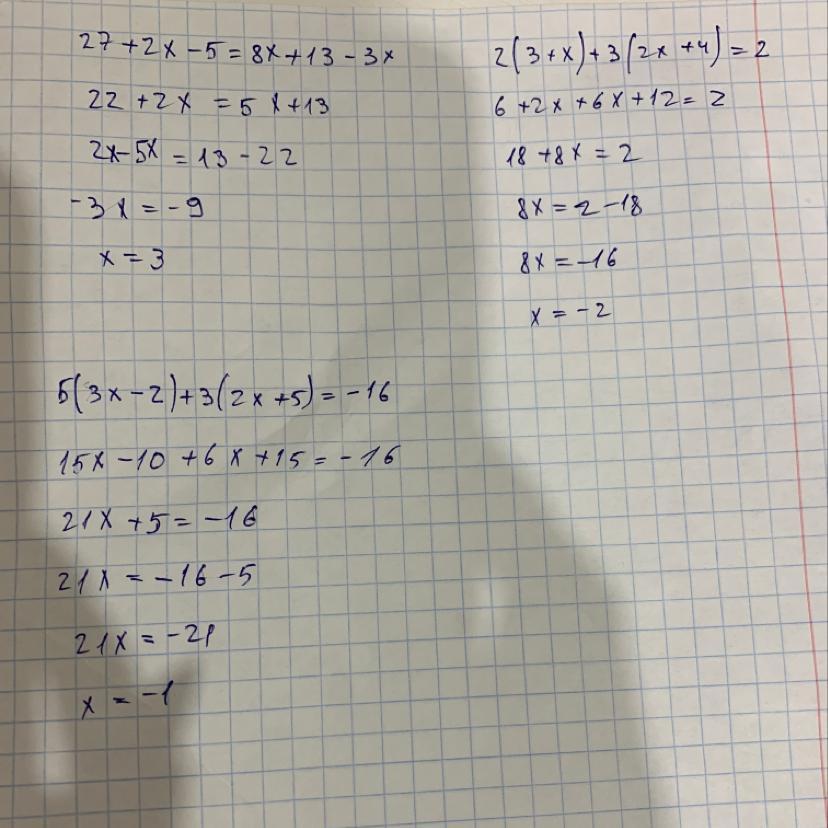 27 + 2x - 5 = 8x + 13 - 3x
22 + 2x = 5x + 13
2x - 5x = 13 - 22
-3x = -9
x = 3
2(3 + x) + 3(2x + 4) = 2
6 + 2x + 6x + 12 = 2
18 + 8x = 2
8x = 2 - 18
8x = -16
x = -2
5(3x - 2) + 3(2x + 5) = -16
15x - 10 + 6x + 15 = -16
21x + 5 = -16
21x = -16 - 5
21x = -21
x = -1